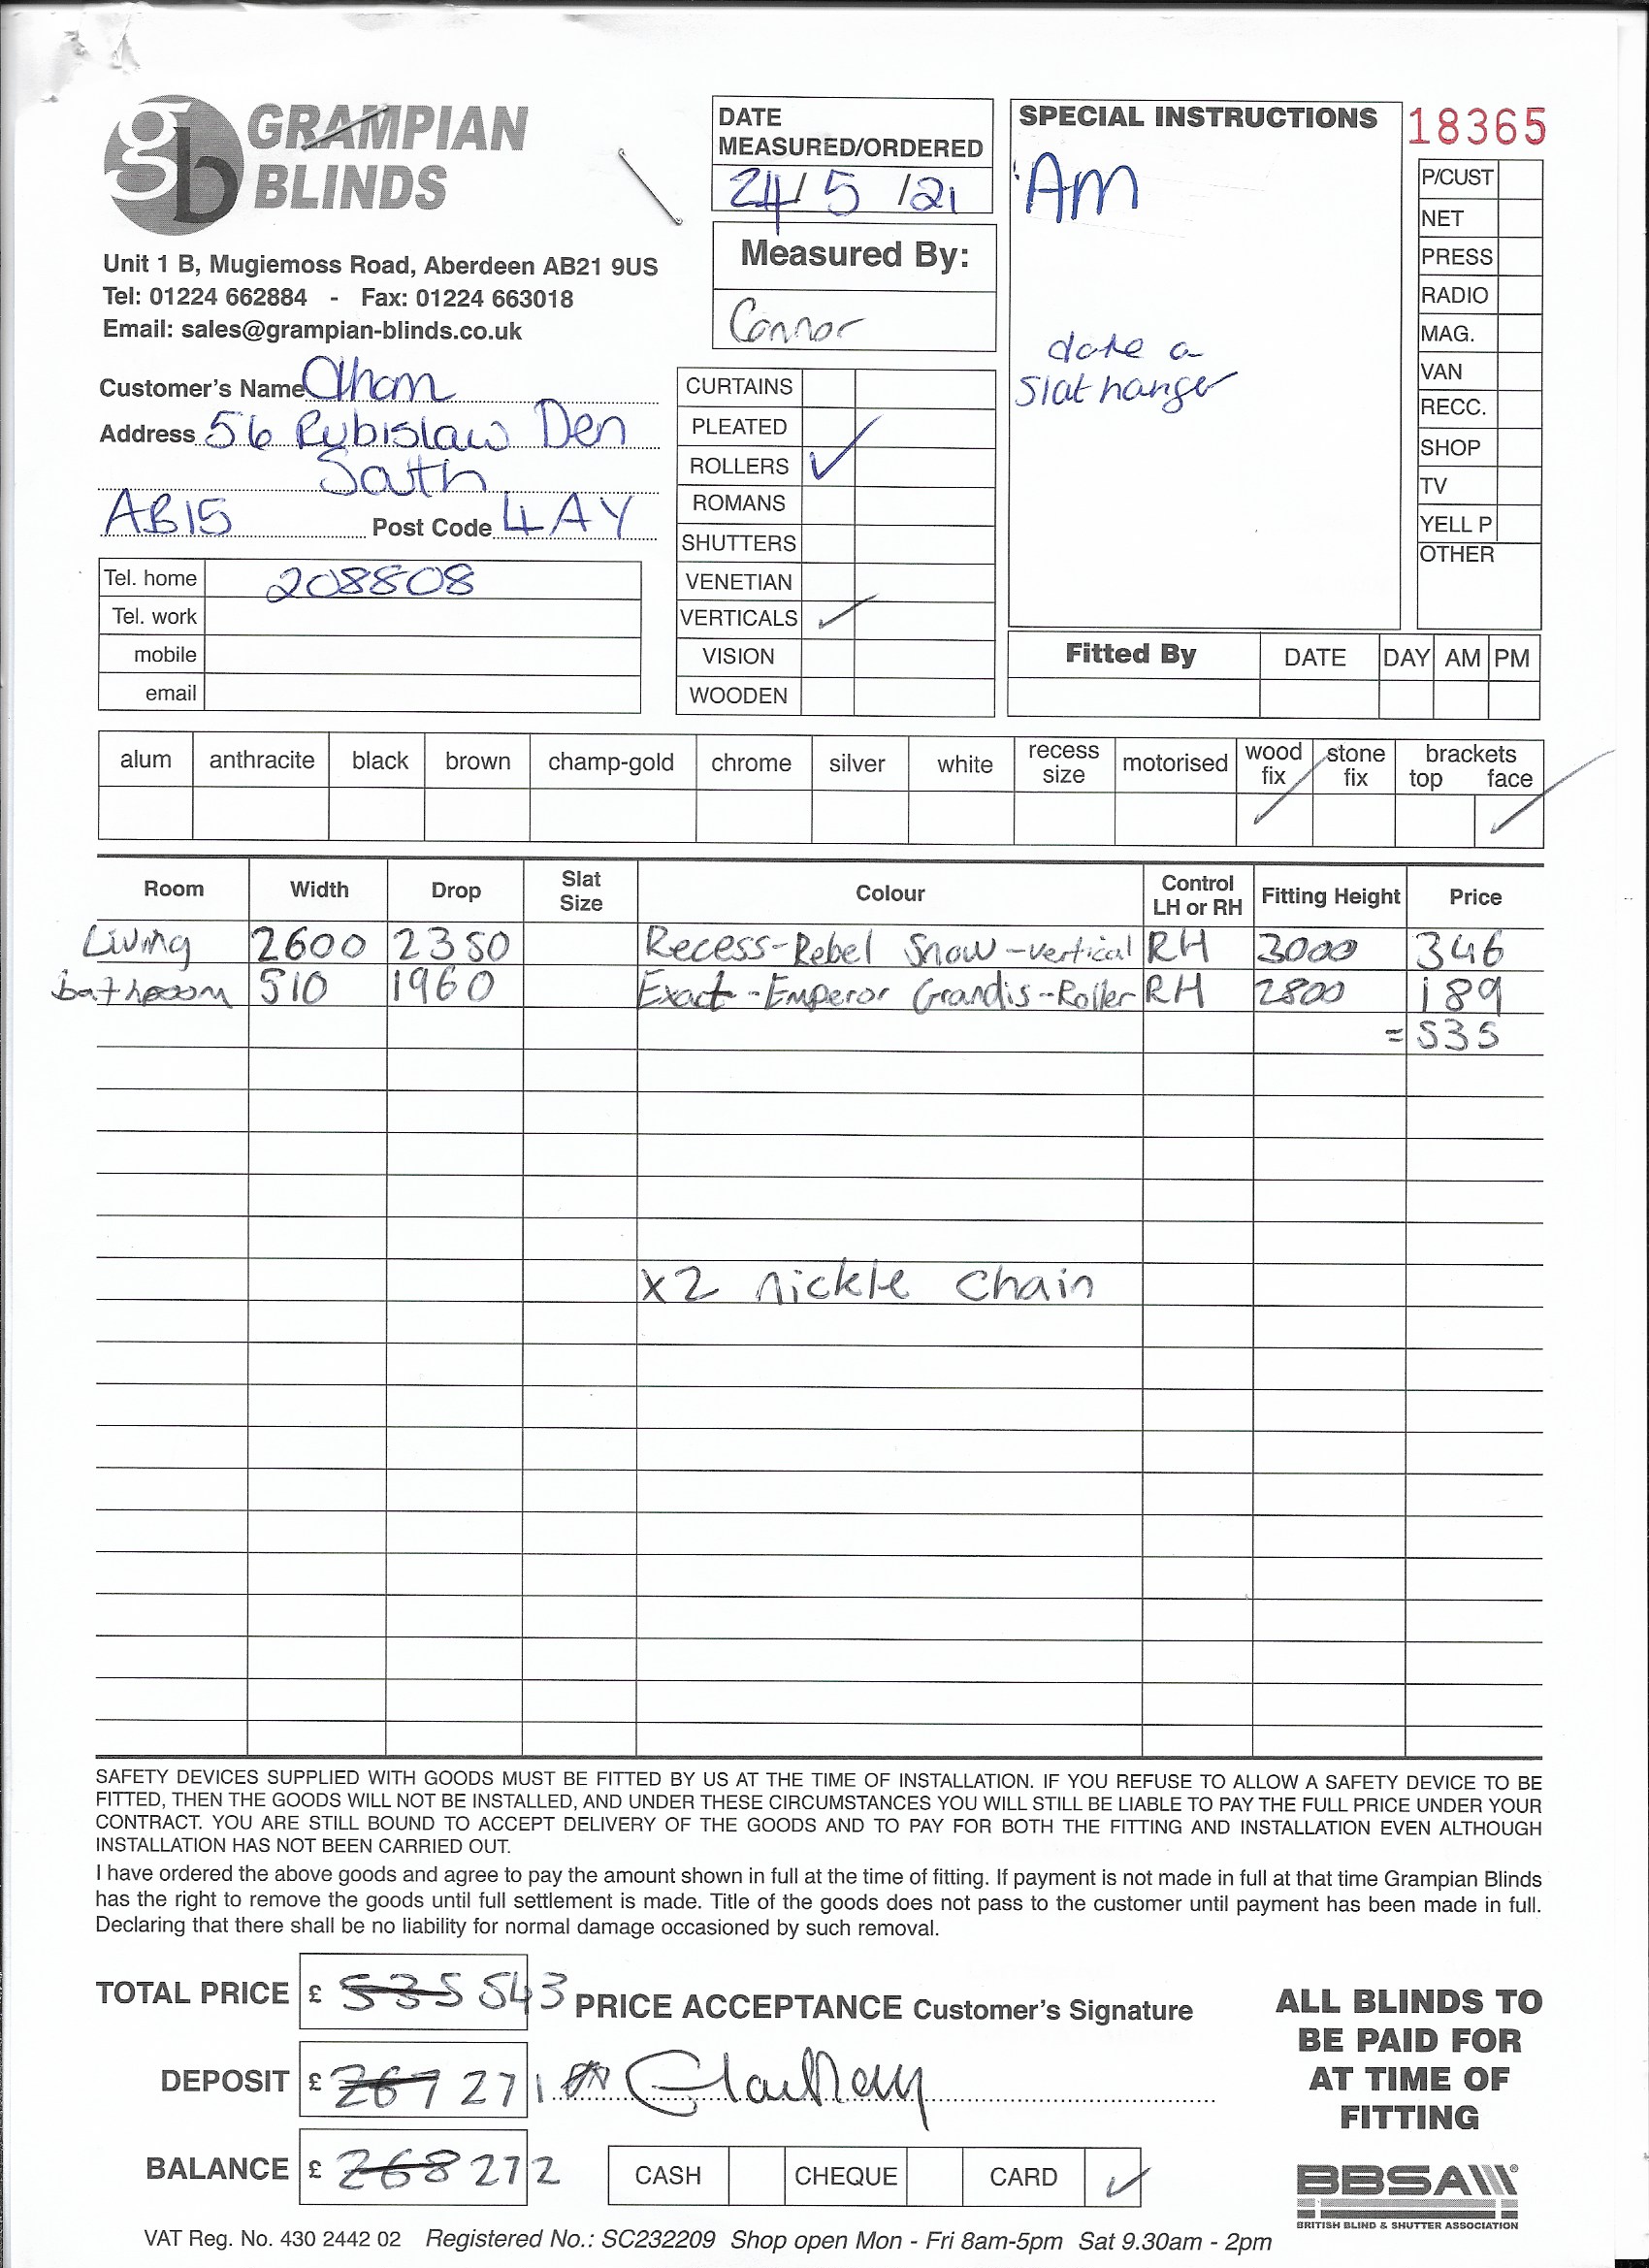 gb GRAMPIAN
BLINDS
Unit 1 B, Mugiemoss Road, Aberdeen AB21 9US
Tel: 01224 662884 - Fax: 01224 663018
Email: sales@grampian-blinds.co.uk
Customer's Name
Address 56 Rubislaw Den
South
AB15 Post Code 4AY
Tel. home 208808
Tel. work
mobile
email
DATE
MEASURED/ORDERED
24/5/21
Measured By:
Connor
CURTAINS
PLEATED
ROLLERS ✓
ROMANS
SHUTTERS
VENETIAN
VERTICALS ✓
VISION
WOODEN
SPECIAL INSTRUCTIONS
AM
slat hanger
18365
P/CUST
NET
PRESS
RADIO
MAG.
VAN
RECC.
SHOP
TV
YELL P
OTHER
Fitted By DATE DAY AM PM
alum anthracite black brown champ-gold chrome silver white recess size motorised wood fix ✓ stone fix brackets top face ✓
Room Width Drop Slat Size Colour Control LH or RH Fitting Height Price
Living 2600 2350 Recess-Rebel Snow-vertical RH 3000 346
bathroom 510 1960 Exact-Emperor Grandis-Roller RH 2800 189
=535
x2 nickle chain
SAFETY DEVICES SUPPLIED WITH GOODS MUST BE FITTED BY US AT THE TIME OF INSTALLATION. IF YOU REFUSE TO ALLOW A SAFETY DEVICE TO BE
FITTED, THEN THE GOODS WILL NOT BE INSTALLED, AND UNDER THESE CIRCUMSTANCES YOU WILL STILL BE LIABLE TO PAY THE FULL PRICE UNDER YOUR
CONTRACT. YOU ARE STILL BOUND TO ACCEPT DELIVERY OF THE GOODS AND TO PAY FOR BOTH THE FITTING AND INSTALLATION EVEN ALTHOUGH
INSTALLATION HAS NOT BEEN CARRIED OUT.
I have ordered the above goods and agree to pay the amount shown in full at the time of fitting. If payment is not made in full at that time Grampian Blinds
has the right to remove the goods until full settlement is made. Title of the goods does not pass to the customer until payment has been made in full.
Declaring that there shall be no liability for normal damage occasioned by such removal.
TOTAL PRICE £ 535 543 PRICE ACCEPTANCE Customer's Signature
DEPOSIT £ 267 271
BALANCE £ 268 272 CASH CHEQUE CARD ✓
ALL BLINDS TO
BE PAID FOR
AT TIME OF
FITTING
BBSA
BRITISH BLIND & SHUTTER ASSOCIATION
VAT Reg. No. 430 2442 02 Registered No.: SC232209 Shop open Mon - Fri 8am-5pm Sat 9.30am - 2pm